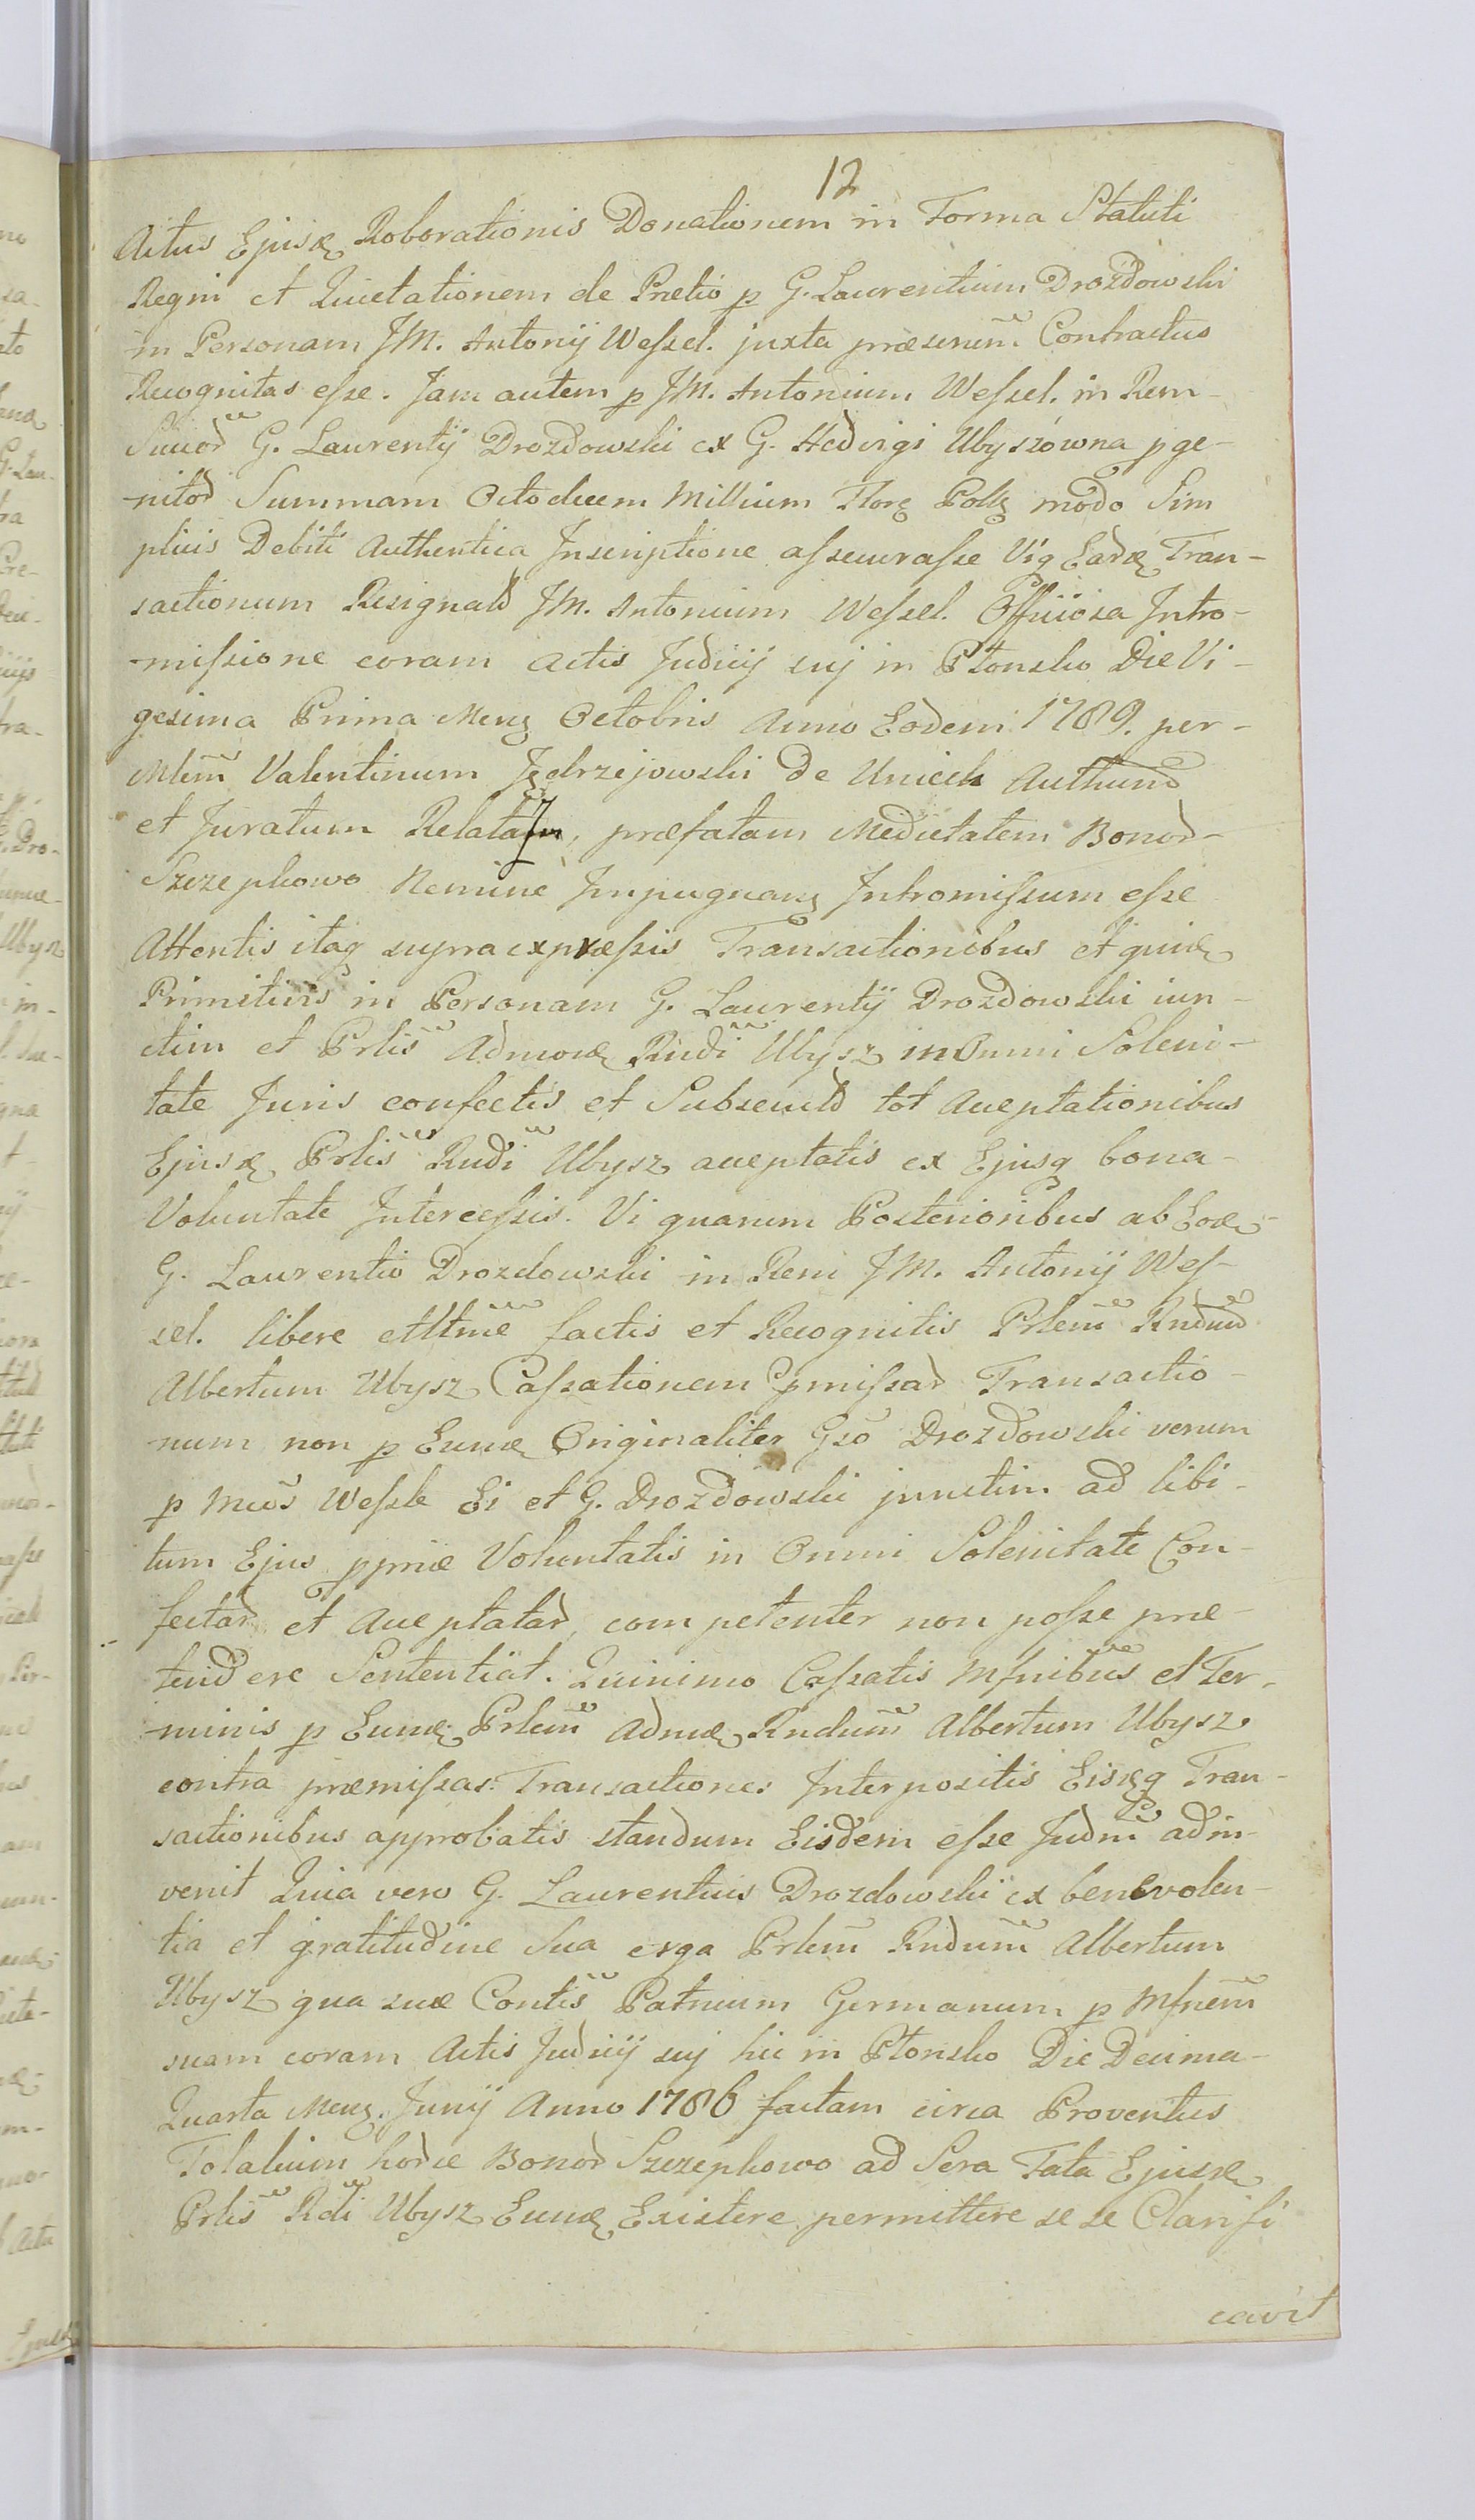 12
Actus Ejusdę Roborationis Donationem in Forma Statuti
Regni et Quietationem de Pretio p G. Laurentium Drozdowski
in Personam JM. Antonij Weſsel. juxta præsenẽm Contractus
Recognitas eſse. Jam autem p JM. Antonium Weſsel. in Rem
G. Laurentij Drozdowski ex G. Hedvigi Ubyszowna pge-
nitoȓ Summam Octodecem Millium Florę Pollę modo Sim
plicis Debiti Authentica Inscriptione aſsecuraſse Vigę Eardę Tran-
sactionum Resignatȓ JM. Antonium Weſsel. Officiosa Intro-
-miſsione coram Actis Judicij suj in Płonsko Die Vi-
gesima Prima Mensę Octobris Anno Eodem 1789. per-
Mlem Valentinum Jędrzejowski de Unieck Authentȓ
et Juratum Relata, præfatam Medietatem Bonoȓ-
Szczepkowo Nemine Impugnanę Intromiſsum eſse
Attentis itaq supra expræſsis Transactionibus et quidę
Primitivis in Personam G. Laurentij Drozdowski iun-
ctim et Prlis Admoudę Rndi Ubysz in Omni Soleni-
tate Juris confectis et Subsecutȓ tot Acceptationibus
Ejusdę Prlis Rndi Ubysz acceptatis ex Ejusq bona-
Voluntate Interceſsis. Vi quarum Posterioribus ab Eodę-
G. Laurentio Drozdowski in Rem JM. Antonij Weſ-
sel. libere et ltme factis et Recognitis Prlem Rndum
Albertum Ubysz Caſsationem pmiſsaȓ Transactio-
num non p Eundę Originaliter Gso Drozdowski verum
p Mcos Weſsle Ei et G. Drozdowski junctim ad libi-
tum Ejus ppriæ Voluntatis in Omni Solenitate Con-
fectaȓ et Acceptataȓ, competenter non poſse præ
tendere Sententiat. Quinimo Caſsatis Mfnibus et Ter-
minis p Eundę Prlem Admdę Rndum Albertum Ubysz
contra præmiſsas Transactiones Interpositis Eisdęq Tran-
sactionibus approbatis standum Eisdem eſse Judm adin-
venit Quia vero G. Laurentius Drozdowski ex benevolen-
tia et gratitudine Sua erga Prlem Rndum Albertum
Ubysz qua suæ Contis Patruum Germanum p Mfnem
suam coram Actis Judicij suj hic in Płonsko Die Decima-
Quarta Mensę. Junij Anno 1786 factam circa Proventus
Totalium hodie Bonoȓ Szczepkowo ad Sera Fata Ejusdę
Prlis Rdi Ubysz Eundę Existere permittere se se Clarifi
cavit